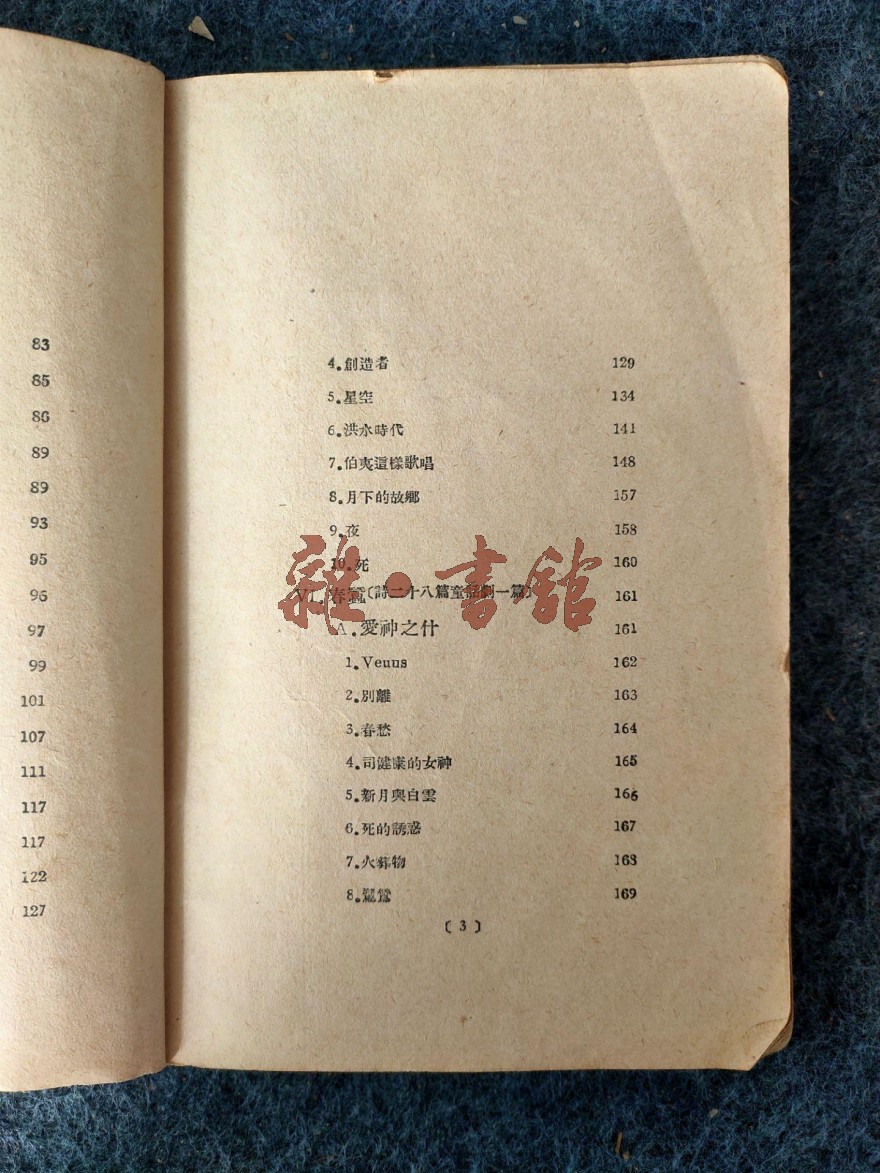 83
85
86
89
89
93
95
96
97
99
101
107
111
117
117
122
127
4.創造者 129
5.星空 134
6.洪水時代 141
7.伯夷這樣歌唱 148
8.月下的故鄉 157
9.夜 158
10.死 160
VI.春蠶〔詩二十八篇童話劇一篇〕 161
A.愛神之什 161
1.Veuus 162
2.別離 163
3.春愁 164
4.司健康的女神 165
5.新月與白雲 166
6.死的誘惑 167
7.火葬物 168
8. 169
〔3〕
雜·書館